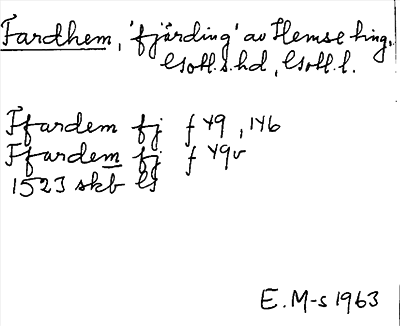 Fardhem, 'fjärding' av Hemse ting,
Gotl.s.hd, Gotl.l.
Ffardem fj f 49, 146
Ffardem fj f 49v
1523 skb G
E. M-s 1963